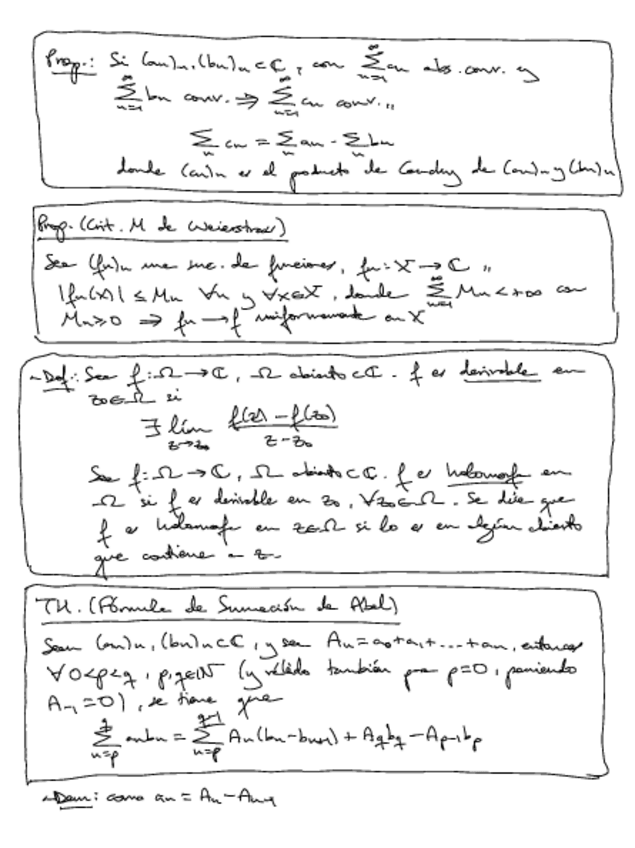 Prop.: Si (an)n, (bn)n ⊂ ℂ, con ∑_{n=1}^∞ an abs. conv. y
∑_{n=1}^∞ bn conv. ⇒ ∑_{n=1}^∞ cn conv. ,,
∑_n cn = ∑_n an · ∑_n bn
donde (cn)n es el producto de Cauchy de (an)n y (bn)n
Prop. (Crit. M de Weierstrass)
Sea (fn)n una suc. de funciones, fn: X → ℂ ,,
|fn(x)| ≤ Mn ∀n y ∀x∈X, donde ∑_{n=1}^∞ Mn < +∞ con
Mn ≥ 0 ⇒ fn → f uniformemente en X
~Def.: Sea f: Ω → ℂ, Ω abierto ⊂ ℂ. f es derivable en
z0 ∈ Ω si
∃ lím_{z→z0} (f(z) - f(z0))/(z - z0)
Sea f: Ω → ℂ, Ω abierto ⊂ ℂ. f es holomorfa en
Ω si f es derivable en z0, ∀z0∈Ω. Se dice que
f es holomorfa en z∈Ω si lo es en algún abierto
que contiene a z.
TH. (Fórmula de Sumación de Abel)
Sean (an)n, (bn)n ⊂ ℂ, y sea An = a0 + a1 + ... + an, entonces
∀ 0<p<q, p,q∈ℕ (y válido también para p=0, poniendo
A-1 = 0), se tiene que
∑_{n=p}^q an bn = ∑_{n=p}^{q-1} An(bn - bn+1) + Aq bq - Ap-1 bp
~Dem: como an = An - An-1